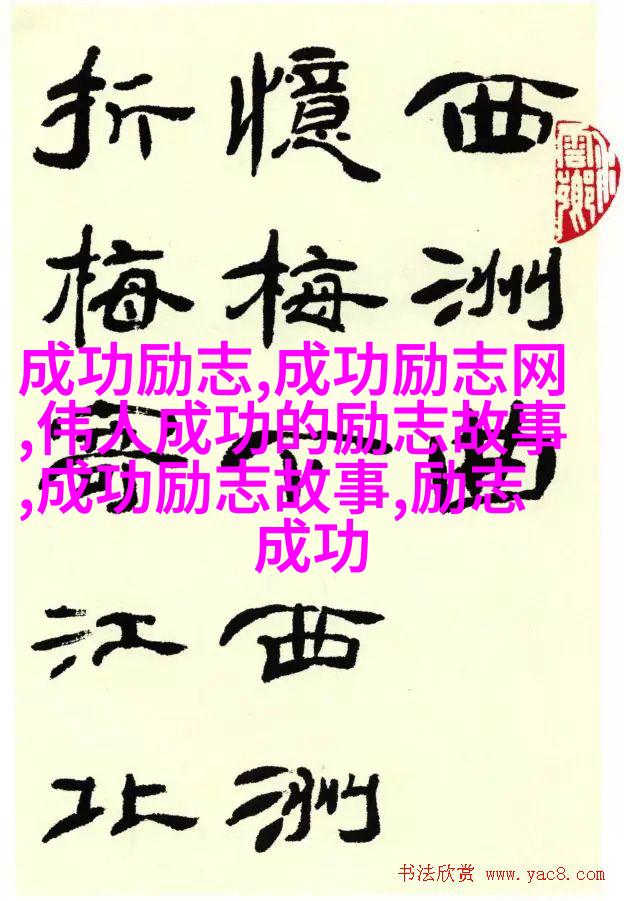 西洲曲
憶梅下西洲
折梅寄江北
成功励志,成功励志网
,伟人成功的励志故事
,成功励志故事,励志
成功
书法欣赏 www.yac8.com